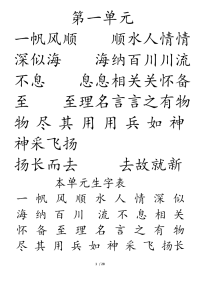 第一单元
一帆风顺 顺水人情情
深似海 海纳百川川流
不息 息息相关关怀备
至 至理名言言之有物
物尽其用用兵如神
神采飞扬
扬长而去 去故就新
本单元生字表
一帆风顺水人情深似
海纳百川流不息相关
怀备至理名言之有物
尽其用兵如神采飞扬
1 / 20